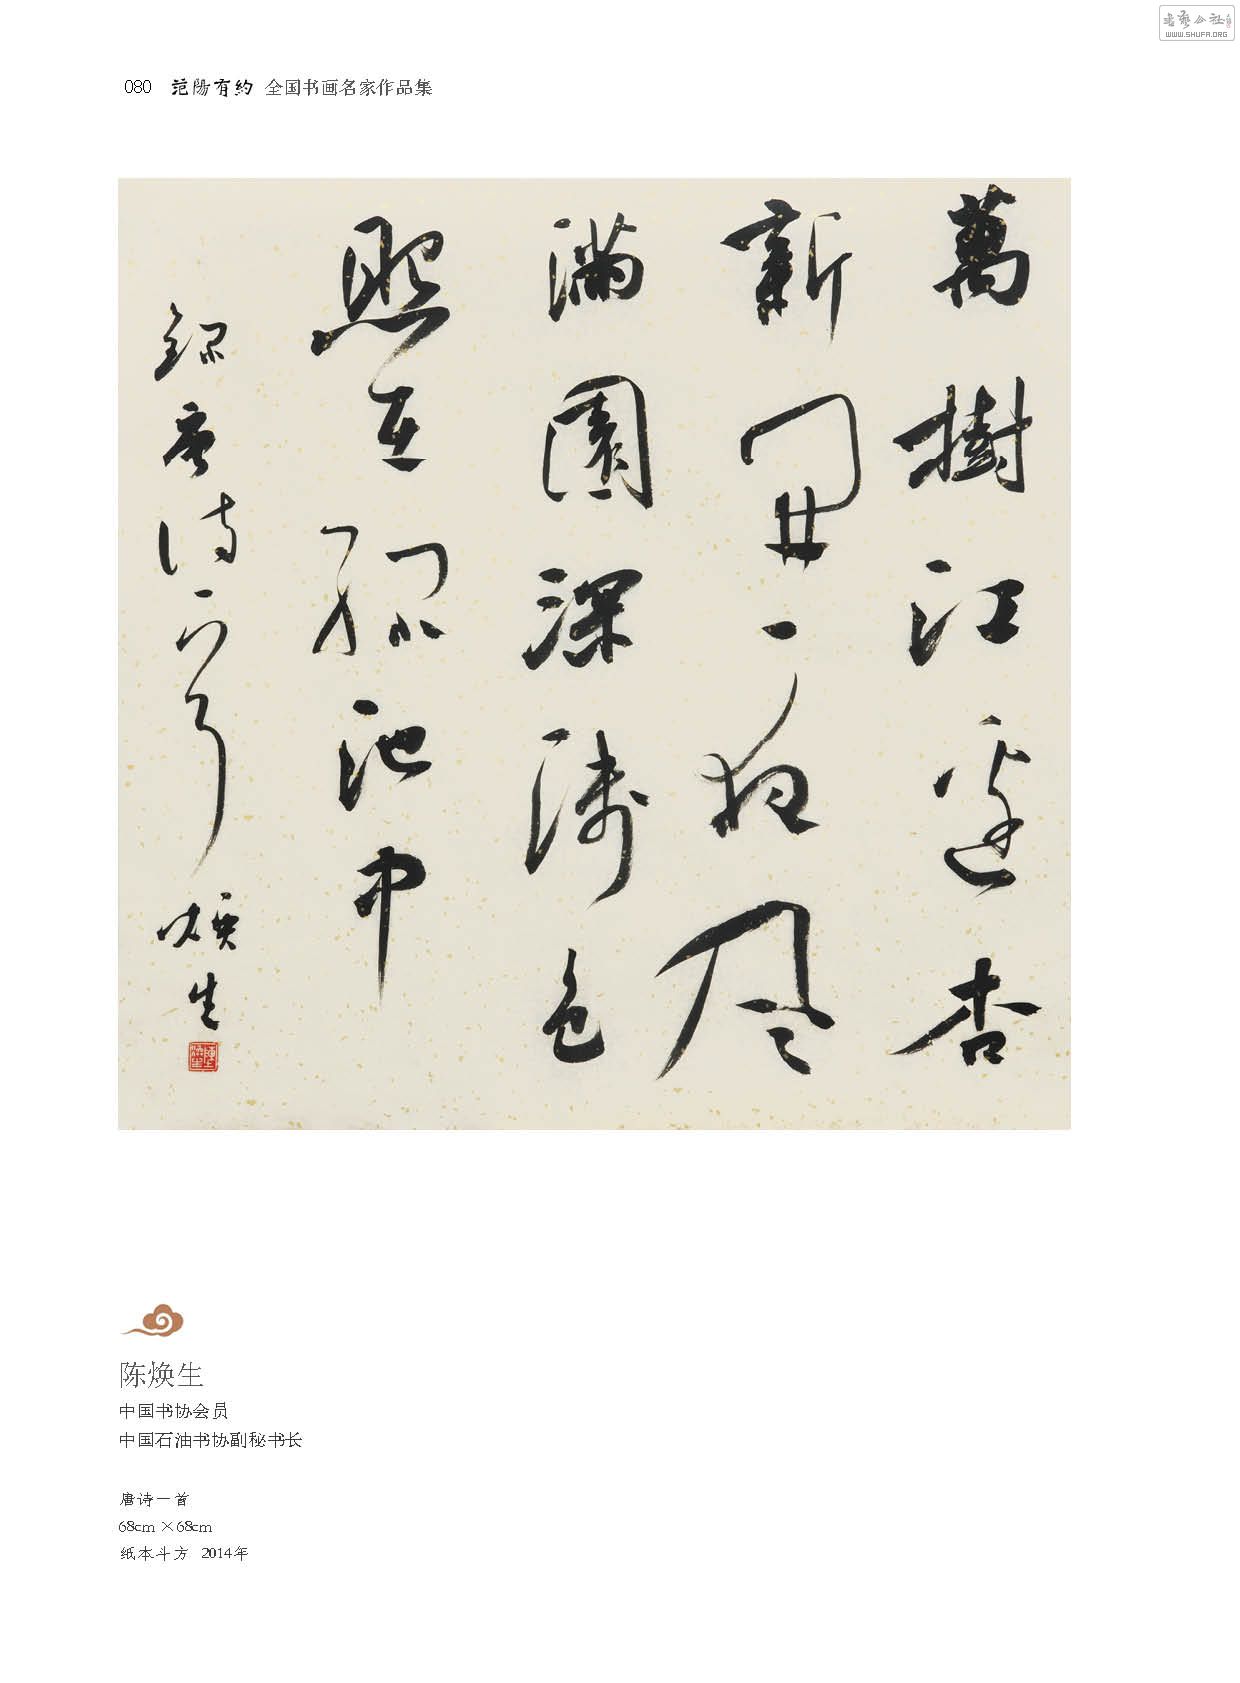 書藝公社
WWW.SHUFA.ORG
080 范陽有約 全国书画名家作品集
萬樹江邊杏
新開一夜風
滿園深淺色
照在綠池中
錄唐詩一首 煥生
陈焕生
中国书协会员
中国石油书协副秘书长
唐诗一首
68cm×68cm
纸本斗方 2014年